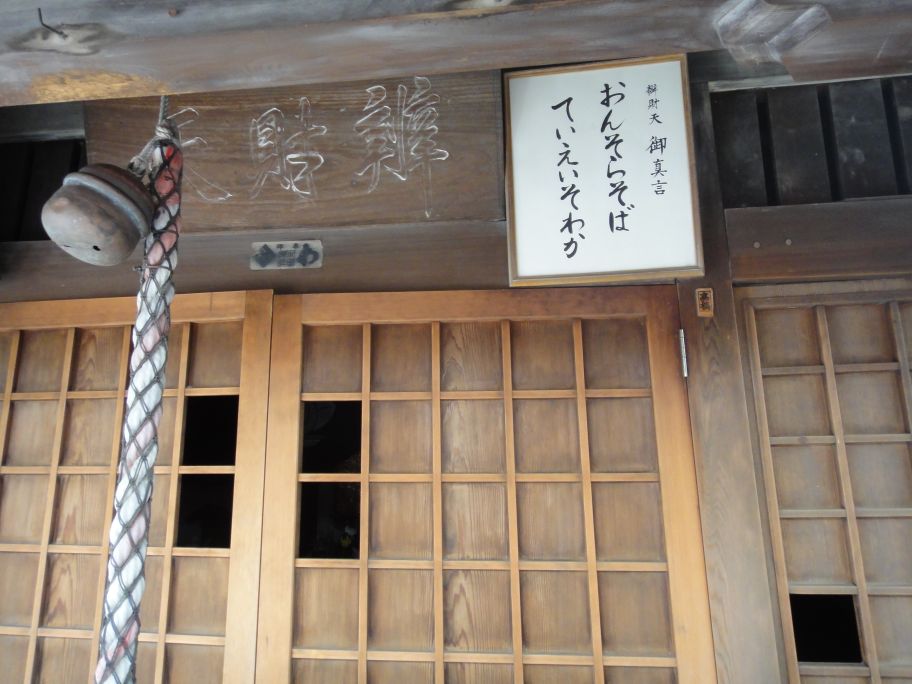 辯財天
辨財天 御真言
おんそらそば
ていえいそわか